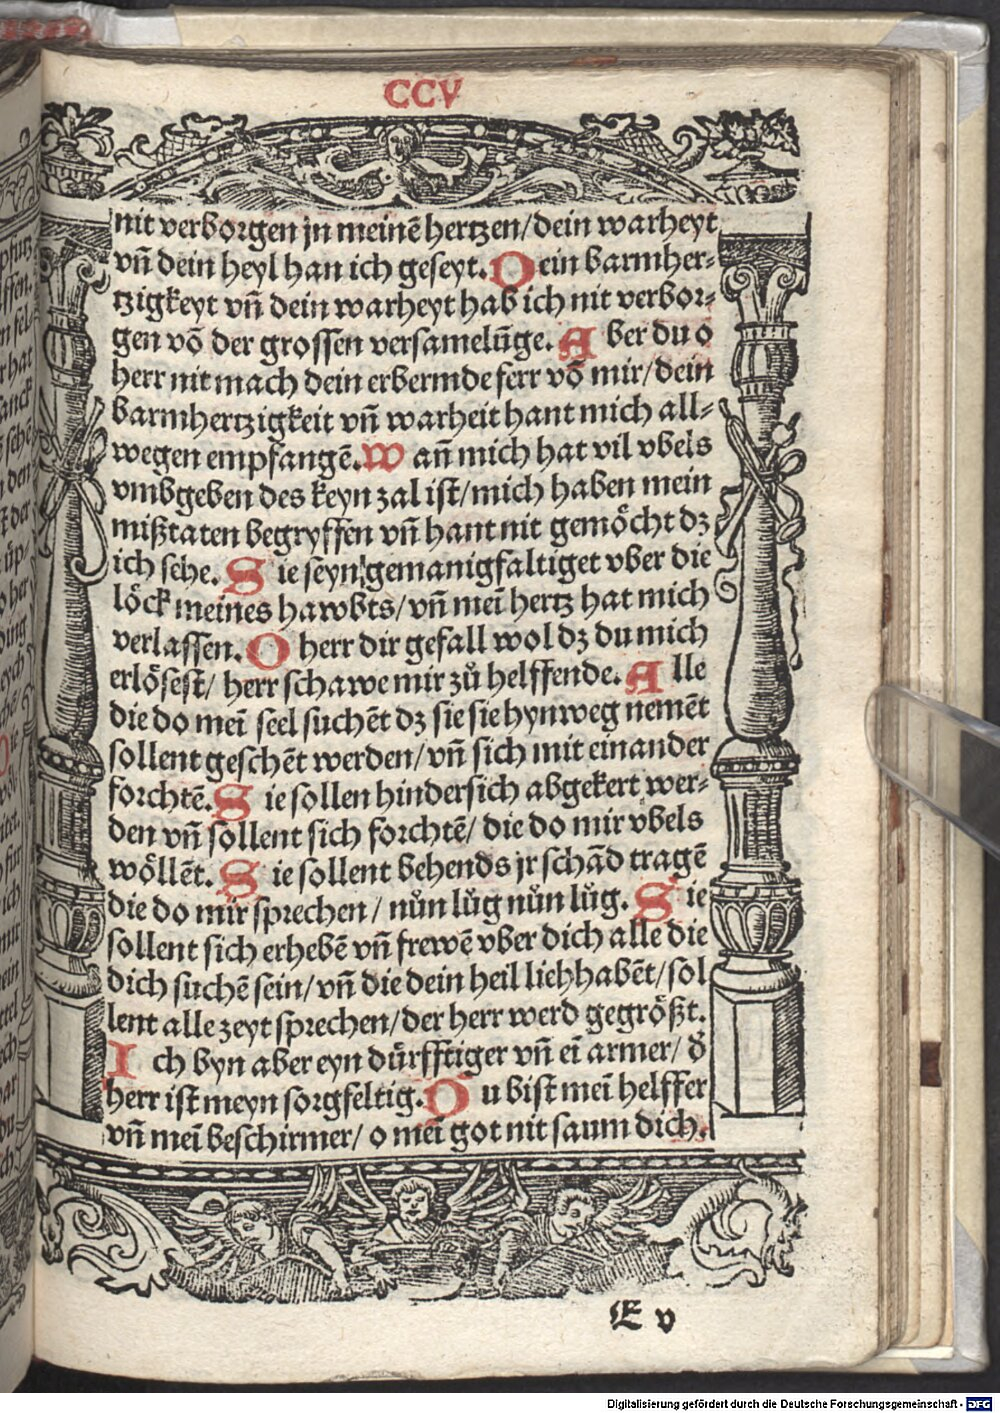 CCV
nit verborgen jn meinē hertzen/dein warheyt
vn̄ dein heyl han ich geseyt. Dein barmher⸗
tzigkeyt vn̄ dein warheyt hab ich nit verbor⸗
gen vō der grossen versamelūge. Aber du o
herr nit mach dein erbermde ferr vō mir/dein
barmhertzigkeit vn̄ warheit hant mich all⸗
wegen empfangē. Wan̄ mich hat vil vbels
vmbgeben des keyn zal ist/mich haben mein
mißtaten begryffen vn̄ hant nit gemoͤcht dz
ich sehe. Sie seyn gemanigfaltiget vber die
loͤck meines hawbts/vn̄ meī hertz hat mich
verlassen. O herr dir gefall wol dz du mich
erloͤsest/ herr schawe mir zuͦ helffende. Alle
die do meī seel suchēt dz sie sie hynweg nemēt
sollent geschēt werden/vn̄ sich mit einander
forchtē. Sie sollen hindersich abgekert wer⸗
den vn̄ sollent sich forchtē/ die do mir vbels
woͤllēt. Sie sollent behends jr schād tragē
die do mir sprechen/ nuͦn luͦg nuͦn luͦg. Sie
sollent sich erhebē vn̄ frewē vber dich alle die
dich suchē sein/vn̄ die dein heil liebhabēt/sol
lent alle zeyt sprechen/der herr werd gegroͤßt.
Ich byn aber eyn duͤrfftiger vn̄ eī armer/ d̄
herr ist meyn sorgfeltig. Du bist meī helffer
vn̄ meī beschirmer/ o meī got nit saum dich.
E v
Digitalisierung gefördert durch die Deutsche Forschungsgemeinschaft - DFG